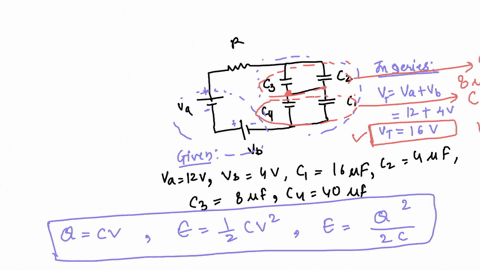 R
C3
C2
Va
C4
C1
Vb
In series:
VT = Va + Vb
= 12 + 4V
VT = 16 V
8 μ
C
Given:
Va=12V, Vb = 4V, C1 = 16 μF, C2 = 4 μF,
C3 = 8 μF, C4 = 40 μF
Q = CV , E = 1/2 CV², E = Q²/2C